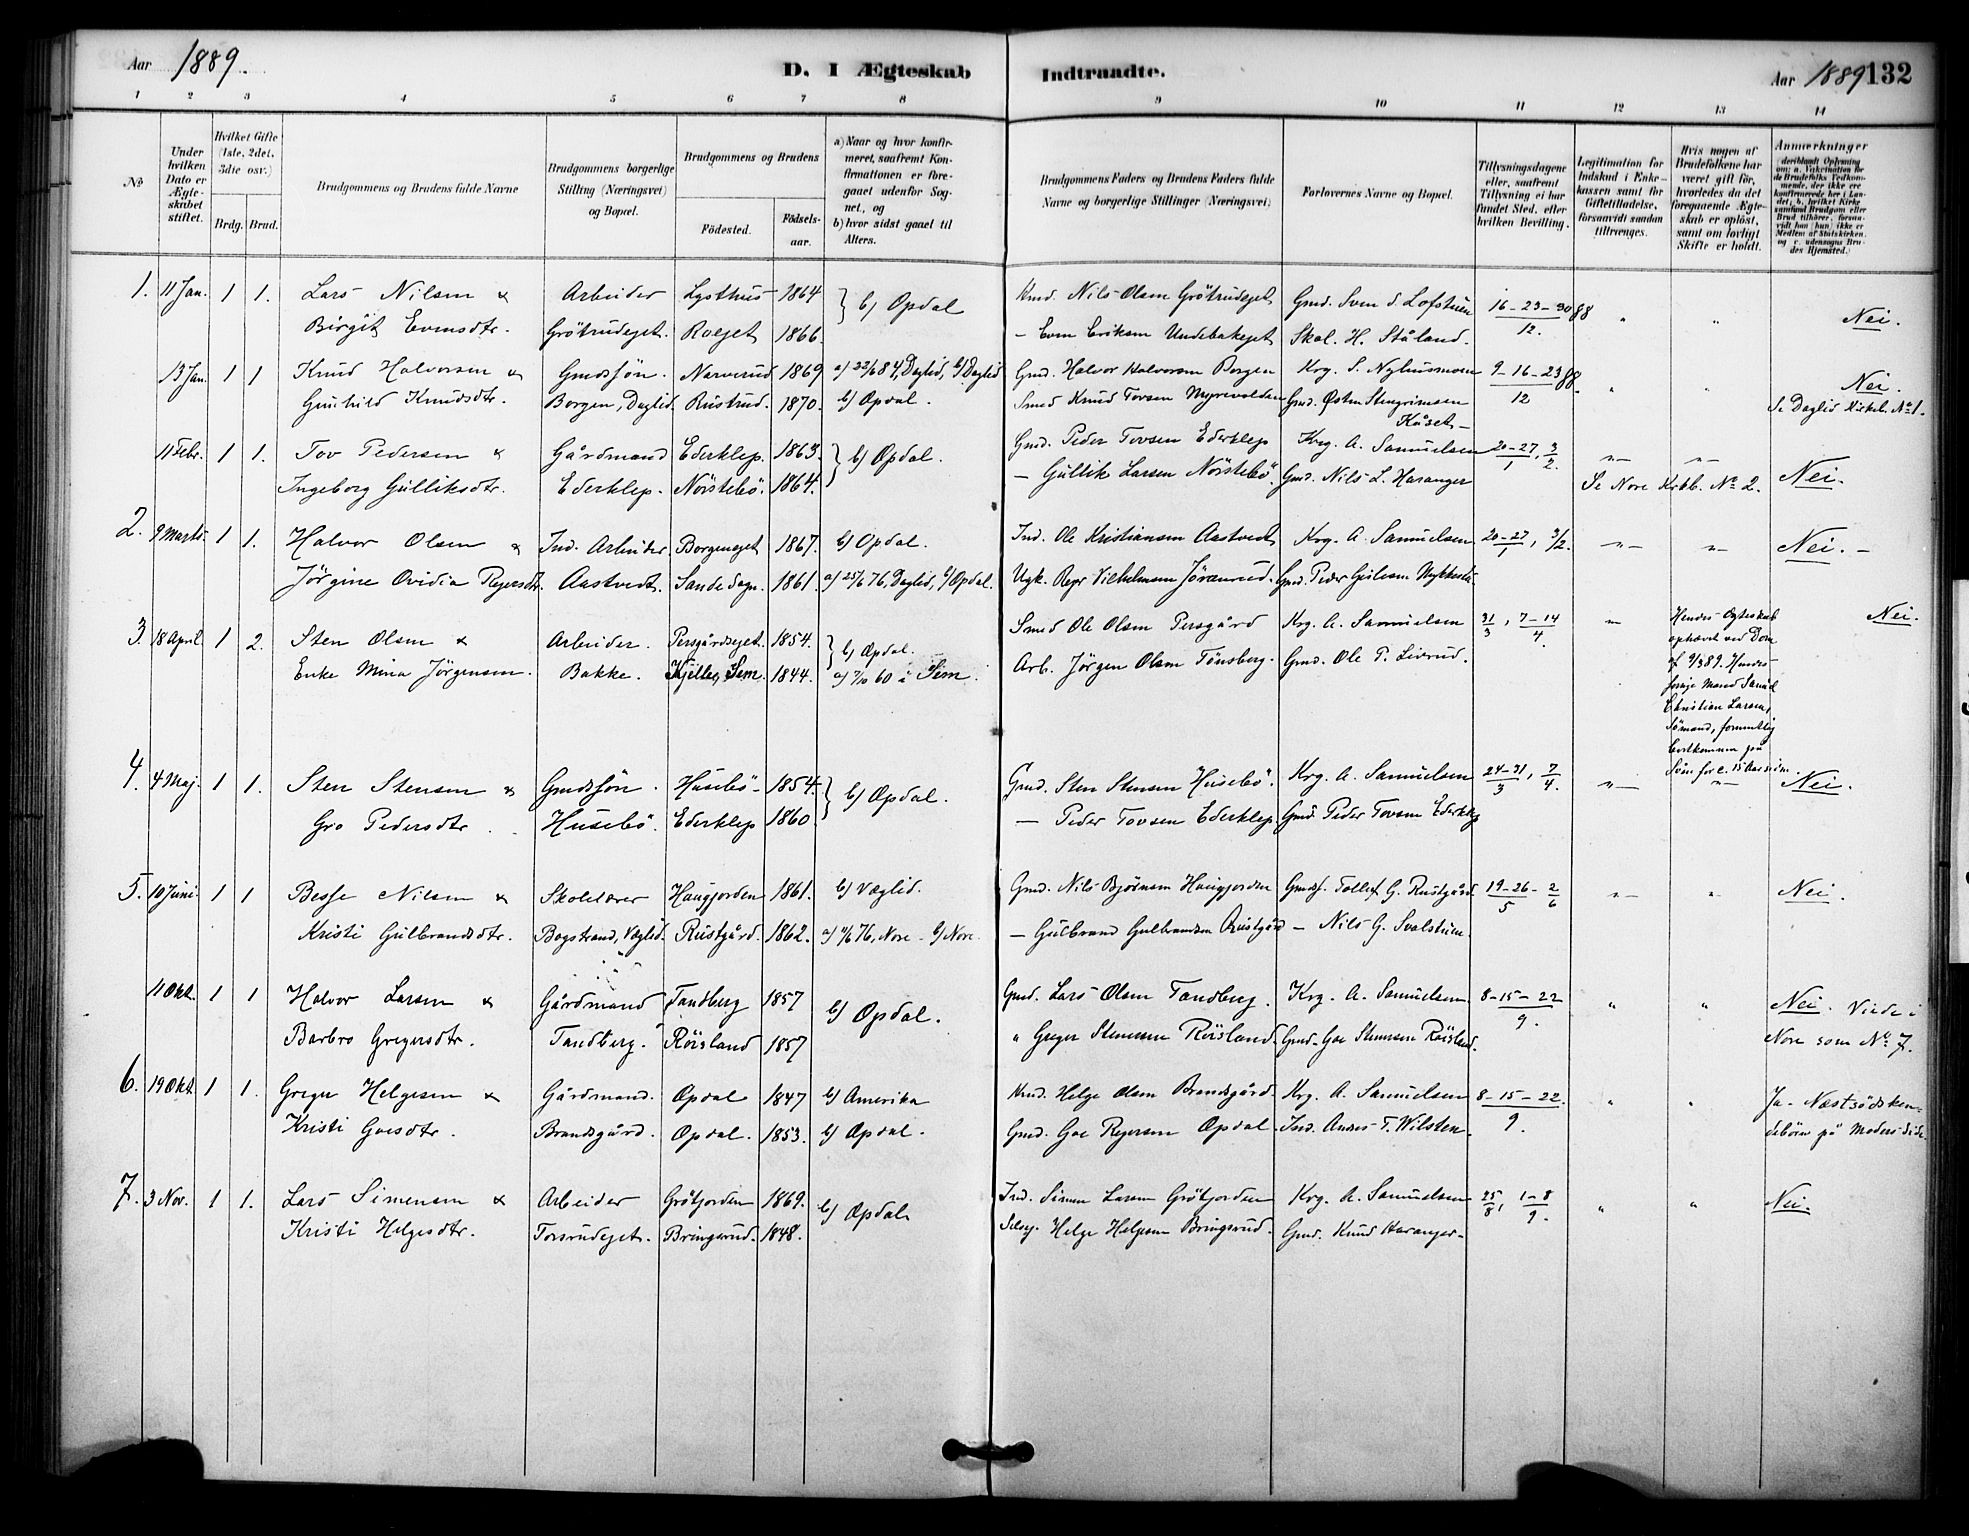 Aar 1889.
D. I Ægteskab Indtraadte.
Aar 1889 132
1 2 3 4 5 6 7 8 9 10 11 12 13 14
No
Under hvilken Dato er Ægteskabet stiftet.
Hvilket Gifte (1ste, 2det, 3die osv.)
Brdg. Brud.
Brudgommens og Brudens fulde Navne
Brudgommens borgerlige Stilling (Næringsvei) og Bopæl.
Brudgommens og Brudens
Födested. Födsels-aar.
a) Naar og hvor konfirmeret, saafremt Konfirmationen er foregaaet udenfor Sognet, og
b) hvor sidst gaaet til Alters.
Brudgommens Faders og Brudens Faders fulde Navne og borgerlige Stillinger (Næringsvei)
Forlovernes Navne og Bopæl.
Tillysningsdagene eller, saafremt Tillysning ei har fundet Sted, efter hvilken Bevilling.
Legitimation for Indskud i Enkekassen samt for Giftetilladelse, forsaavidt saadan tiltrænges.
Hvis nogen af Brudefolkene har været gift før, hvorledes da det foregaaende Ægteskab er opløst, samt om lovligt Skifte er holdt.
Anmerkninger
(deriblandt Oplysning om: a. Vakcination for de Brudefolks Vedkommende, der ikke ere konfirmerede her i Landet; b. hvilket Kirkesamfund Brudgom eller Brud tilhörer, forsaavidt han (hun) ikke er Medlem af Statskirken, og c. udensogns Brudes Hjemsted.)
1. 11 Jan. 1 1. Lars Nilsen & Arbeider Lysthus 1864 } b) Opdal Nils Olsen Grötrudejet, Gmd. Sven S. Lofstuen 16-23-30 88 " " Nei.
Birgit Evensdtr. Grötrudejet. Roejet 1866. — Even Eriksen Undebakejet Skol. H. Ståland. 12.
13 Jan. 1 1 Knud Halvorsen & Gmdssön. Narverud 1869 a) 22/6 84, Daglid, b) Daglid Gmd. Halvor Halvorsen Borgen Krg. S. Nyhusmoen 9-16-23 88. " " Nei.
Gunhild Knudsdtr. Borgen, Daglid. Rustrud. 1870. b) Opdal. Smed Knud Tovsen Myrevolden Gmd. Østen Stengrimsen 12 Se Daglid Kirkeb. No 1.
Kåset
11 Febr. 1 1. Tov Pedersen & Gårdmand Ederklep. 1863. } b) Opdal. Gmd. Peder Tovsen Ederklep Krg. A. Samuelsen 20-27, 3 -"- -"-
Ingeborg Gulliksdtr. Ederklep. Nörstebö. 1864. — Gullik Larsen Nörstebö. Gmd. Nils L. Haranger 1 2. Se Nore Krbb. No 2. Nei.
2. 9 Marts. 1 1. Halvor Olsen & Ind. Arbeider Borgenejet 1867. b) Opdal. Ind. Ole Kristiansen Aastvedt Krg. A. Samuelsen 20-27/1, 3/2. -"- -"- Nei. —
Jörgine Ovidia Rejersdtr. Aastvedt. Sande Sogn. 1861. a) 25/6 76, Daglid, b) Opdal. Ugk. Rejer Vilhelmsen Jöranrud. Gmd. Peder
3. 18 April 1 2. Sten Olsen & Arbeider. Persgårdsejet. 1854. } b) Opdal. Smed Ole Olsen Persgård Krg. A. Samuelsen 31/3, 7-14/4. -"- Nei.
Enke Mina Jörgensen. Bakke. Kjelle, Sem. 1844. a) 7/10 60 i Sem. Arb. Jörgen Olsen Tönsberg. Gmd. Ole P. Liverud.
Hendes Egteskab
ophævet ved Dom
af 9/3 89. Hendes
forrige Mand
Christian Larsen,
Sömand, formentlig
bortkommen på
Söen for c. 15 Aar siden.
4. 4 Maj. 1 1. Sten Stensen & Gmdssön. Husebö 1854. } b) Opdal. Gmd. Sten Stensen Husebö. Krg. A. Samuelsen 24-31/3, 7/4. -"- -"- Nei.
Gro Pedersdtr. Husebö. Ederklep 1860. — Peder Tovsen Ederklep. Gmd. Peder Tovsen Ederklep
5. 10 Juni. 1 1 Besse Nilsen & Skolelærer Haugjorden 1861. b) Væglid. Gmd. Nils Bjørnsen Haugjorden Gmdss. Tollef G. Rustgård. 19-26-2 -"- " Nei.
Kristi Gulbrandsdtr. Bogstrand, Væglid. Rustgård. 1862. a) 11/6 76, Nore - b) Nore. — Gulbrand Gulbrandsen Rustgård — Nils G. Svalstuen. 5 6
11 Okt. 1 1 Halvor Larsen & Gårdmand Tandberg 1857 b) Opdal. Gmd. Lars Olsen Tandberg. Krg. A. Samuelsen 8-15-22 " " Nei. Viede i
Barbro Gregersdtr. Tandberg. Röisland 1857 " Greger Stensen Röisland. Gmd. Goe Stensen Röisland. 9. Nore som No 7.
6. 19 Okt. 1 1. Greger Helgesen & Gårdmand. Opdal 1847 b) Amerika Helge Olsen Brandsgård. Krg. A. Samuelsen 8-15-22. " " Ja - Næstsödsken-
Kristi Goesdtr. Brandsgård. Opdal. 1853. b) Opdal. Gmd. Goe Rejersen Opdal. Ind. Anders T. Wilsten. 9. debörn på Moders Side.
7. 3 Nov. 1 1. Lars Simensen & Arbeider Grötjorden 1869. b) Opdal Ind. Simen Larsen Grötjorden Krg. A. Samuelsen 25/8, 1-8/9. " " Nei.
Kristi Helgesdtr. Forsrudejet. Bringsrud. 1848. Helge Helgesen Bringsrud. Gmd. Knud Haranger.